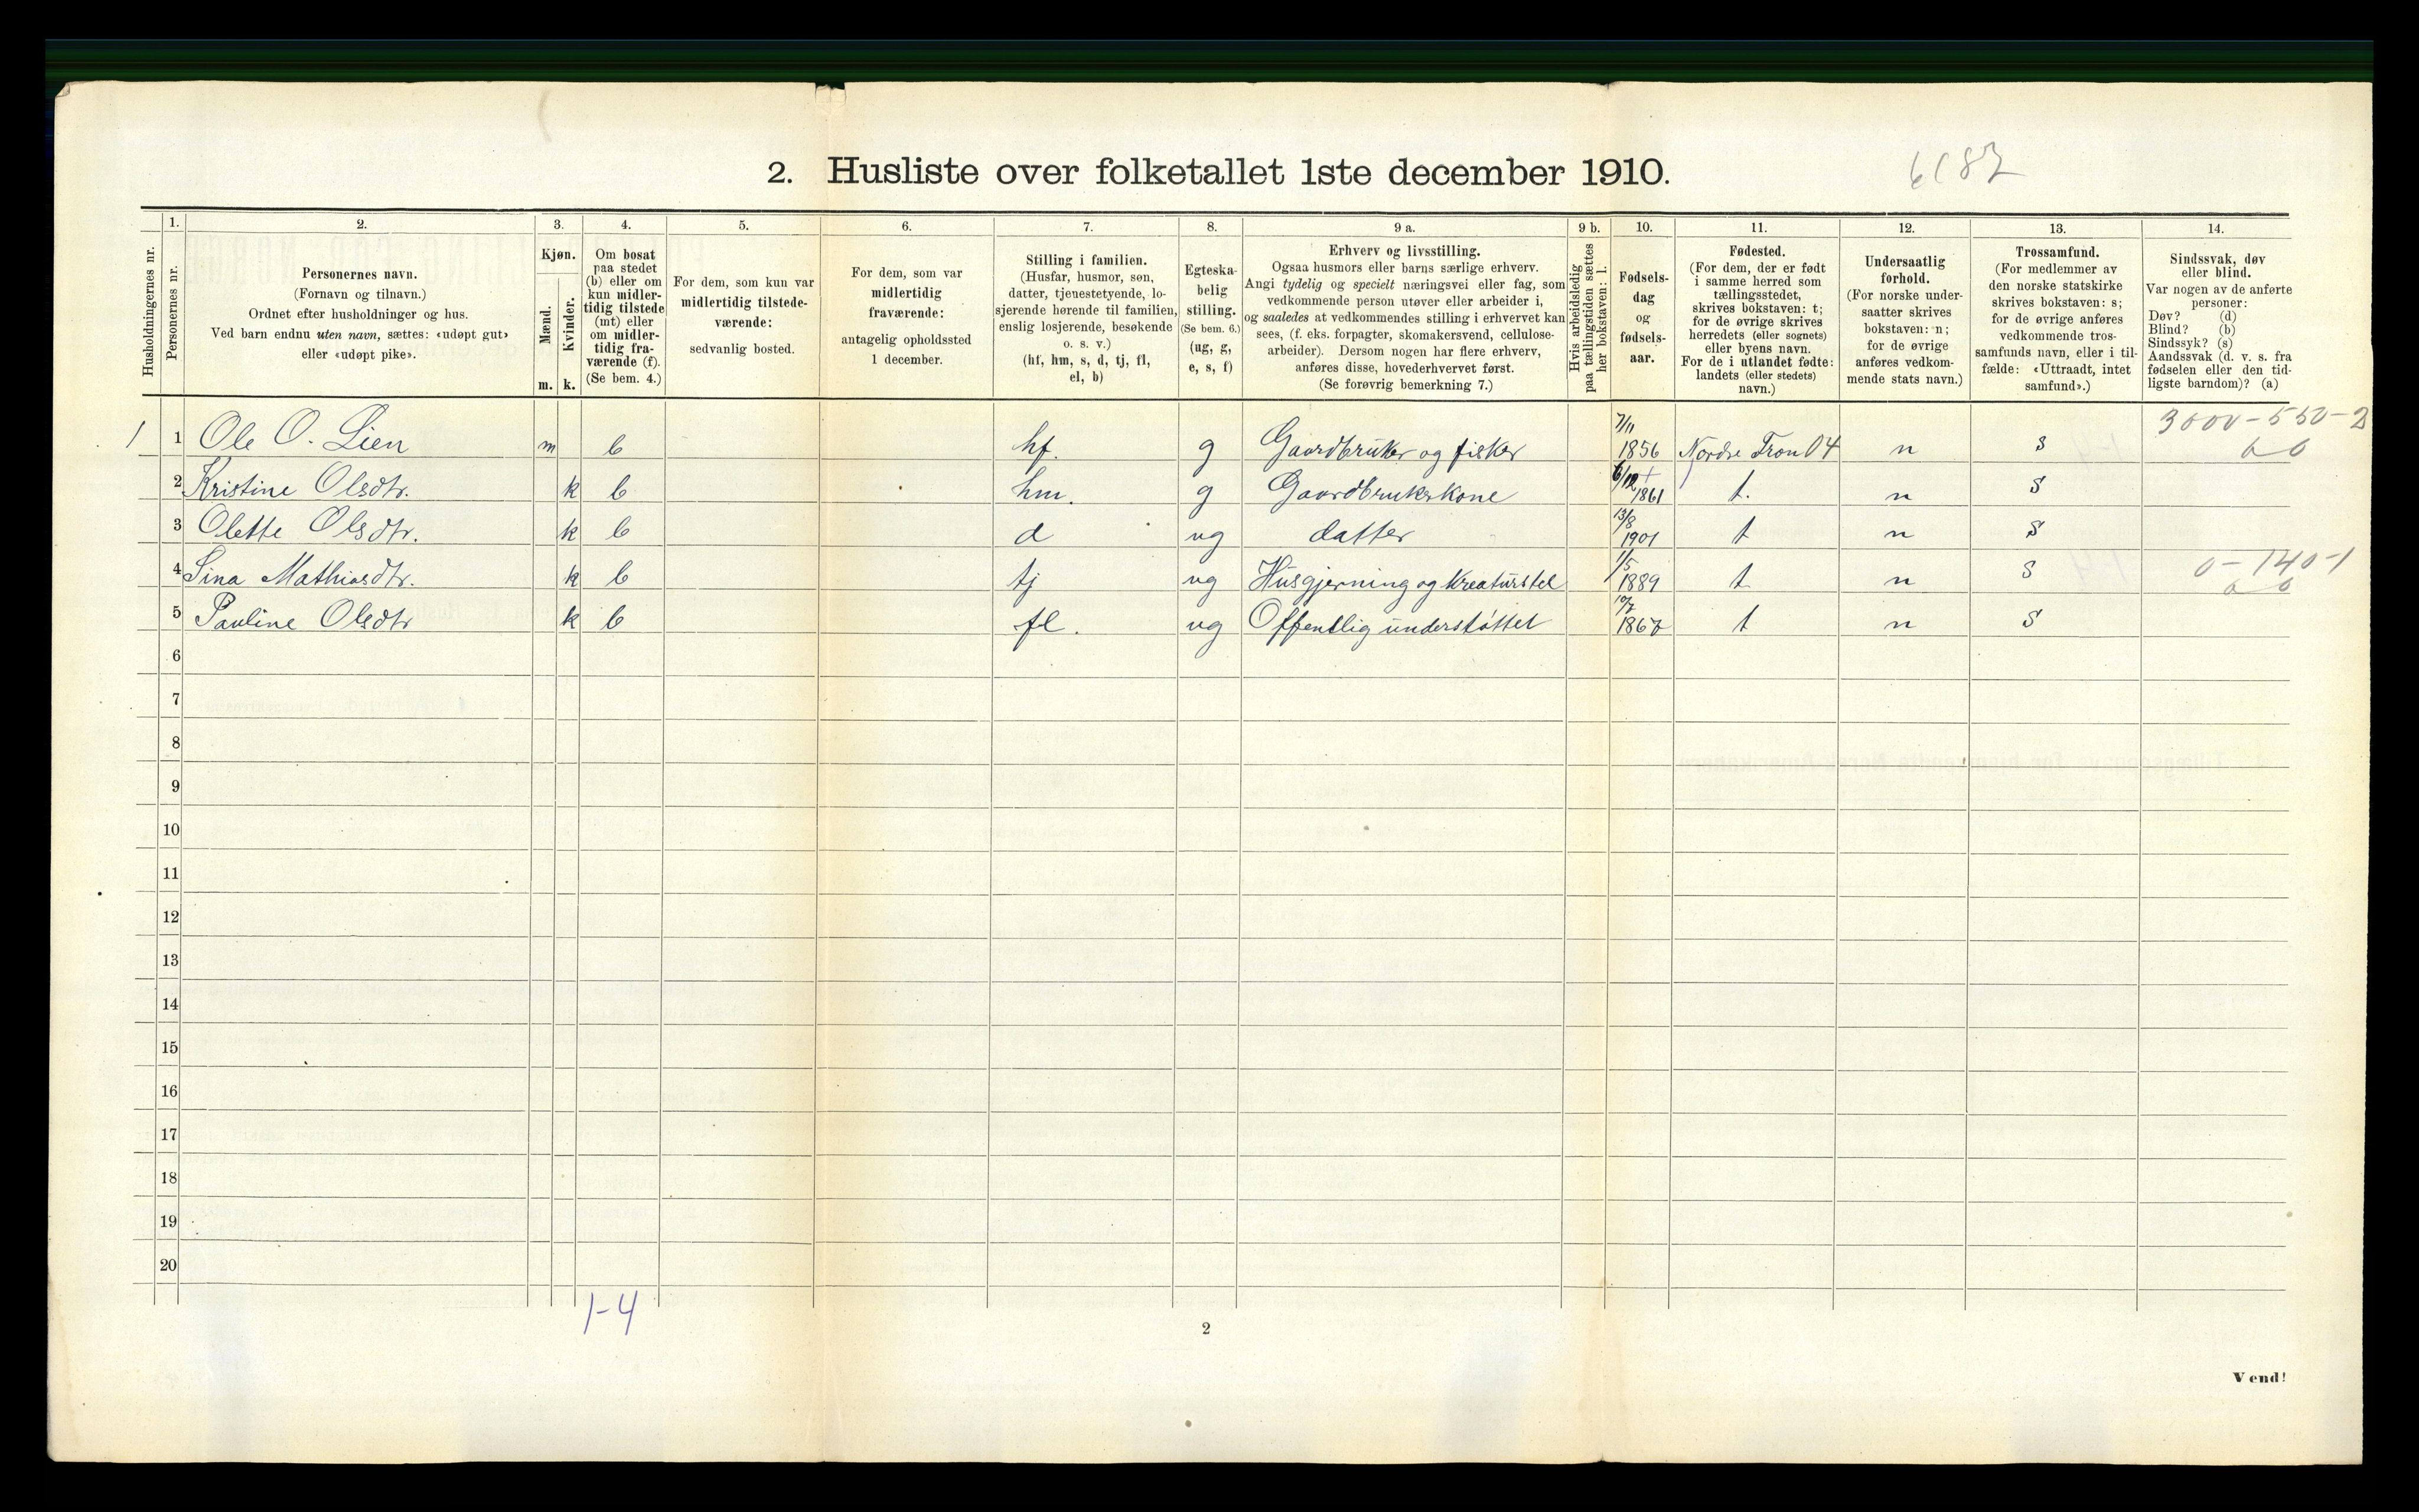 2. Husliste over folketallet 1ste december 1910.
6187
Husholdningernes nr.
1.
Personernes nr.
2.
Personernes navn.
(Fornavn og tilnavn.)
Ordnet efter husholdninger og hus.
Ved barn endnu uten navn, sættes: «udøpt gut»
eller «udøpt pike».
3.
Kjøn.
Mænd.
Kvinder.
m. k.
4.
Om bosat
paa stedet
(b) eller om
kun midler-
tidig tilstede
(mt) eller
om midler-
tidig fra-
værende (f).
(Se bem. 4.)
5.
For dem, som kun var
midlertidig tilstede-
værende:
sedvanlig bosted.
6.
For dem, som var
midlertidig
fraværende:
antagelig opholdssted
1 december.
7.
Stilling i familien.
(Husfar, husmor, søn,
datter, tjenestetyende, lo-
sjerende hørende til familien,
enslig losjerende, besøkende
o. s. v.)
(hf, hm, s, d, tj, fl,
el, b)
8.
Egteska-
belig
stilling.
(Se bem. 6.)
(ug, g,
e, s, f)
9 a.
Erhverv og livsstilling.
Ogsaa husmors eller barns særlige erhverv.
Angi tydelig og specielt næringsvei eller fag, som
vedkommende person utøver eller arbeider i,
og saaledes at vedkommendes stilling i erhvervet kan
sees, (f. eks. forpagter, skomakersvend, cellulose-
arbeider). Dersom nogen har flere erhverv,
anføres disse, hovederhvervet først.
(Se forøvrig bemerkning 7.)
9 b.
Hvis arbeidsledig
paa tællingstiden sættes
her bokstaven: l.
10.
Fødsels-
dag
og
fødsels-
aar.
11.
Fødested.
(For dem, der er født
i samme herred som
tællingsstedet,
skrives bokstaven: t;
for de øvrige skrives
herredets (eller sognets)
eller byens navn.
For de i utlandet fødte:
landets (eller stedets)
navn.)
12.
Undersaatlig
forhold.
(For norske under-
saatter skrives
bokstaven: n;
for de øvrige
anføres vedkom-
mende stats navn.)
13.
Trossamfund.
(For medlemmer av
den norske statskirke
skrives bokstaven: s;
for de øvrige anføres
vedkommende tros-
samfunds navn, eller i til-
fælde: «Uttraadt, intet
samfund».)
14.
Sindssvak, døv
eller blind.
Var nogen av de anførte
personer:
Døv? (d)
Blind? (b)
Sindssyk? (s)
Aandssvak (d. v. s. fra
fødselen eller den tid-
ligste barndom)? (a)
3000-550-2
1 1 Ole O. Lien m b hf. g Gaardbruker og fisker 7/11 1856 Nordre Fron 04 n s
2 Kristine Olsdtr. k b hm. g Gaardbrukerkone 6/12 1861 t. n s
3 Olette Olsdtr. k b d ug datter 13/8 1901 t n s
4 Sina Mathiasdtr. k b tj ug Husgjerning og kreaturstel 1/5 1889 t n s 0-140-1
5 Pauline Olsdtr k b fl. ug Offentlig understøttet 10/7 1867 t n s
6
7
8
9
10
11
12
13
14
15
16
17
18
19
20
1-4
2
Vend!